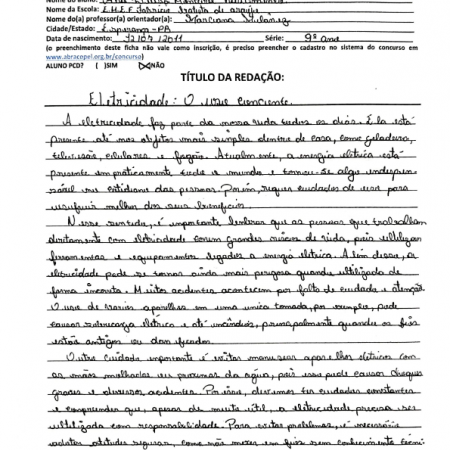 Nome da Escola: E.M.E.F.
Nome do(a) professor(a) orientador(a): Marciana
Cidade/Estado: Esperança - PA
Data de nascimento: 12/07/2011 Série: 9º ano
(o preenchimento desta ficha não vale como inscrição, é preciso preencher o cadastro no sistema do concurso em
www.abracopel.org.br/concurso)
ALUNO PCD? ( )SIM (X)NÃO
TÍTULO DA REDAÇÃO:
Eletricidade: O uso consciente.
A eletricidade faz parte da nossa vida todos os dias. Ela está
presente até nos objetos mais simples dentro de casa, como geladeira,
televisão, celulares e fogão. Atualmente, a energia elétrica está
presente em praticamente tudo o mundo e tornou-se algo indispen-
sável no cotidiano das pessoas. Porém, requer cuidados de uso para
usufruir melhor dos seus benefícios.
Nesse sentido, é importante lembrar que as pessoas que trabalham
diretamente com eletricidade correm grandes riscos de vida, pois utilizam
ferramentas e equipamentos ligados a energia elétrica. Além disso, a
eletricidade pode se tornar ainda mais perigosa quando utilizada de
forma incorreta. Muitos acidentes acontecem por falta de cuidado e atenção.
O uso de vários aparelhos em uma única tomada, por exemplo, pode
causar sobrecarga elétrica e até incêndios, principalmente quando os fios
estão antigos ou danificados.
Outro cuidado importante é evitar manusear aparelhos elétricos com
as mãos molhadas ou próximas da água, pois isso pode causar choques
graves e diversos acidentes. Por isso, devemos ter cuidados constantes
e compreender que, apesar de muito útil, a eletricidade precisa ser
utilizada com responsabilidade. Para evitar problemas, é necessário
adotar atitudes seguras, como não mexer em fios sem conhecimento técni-